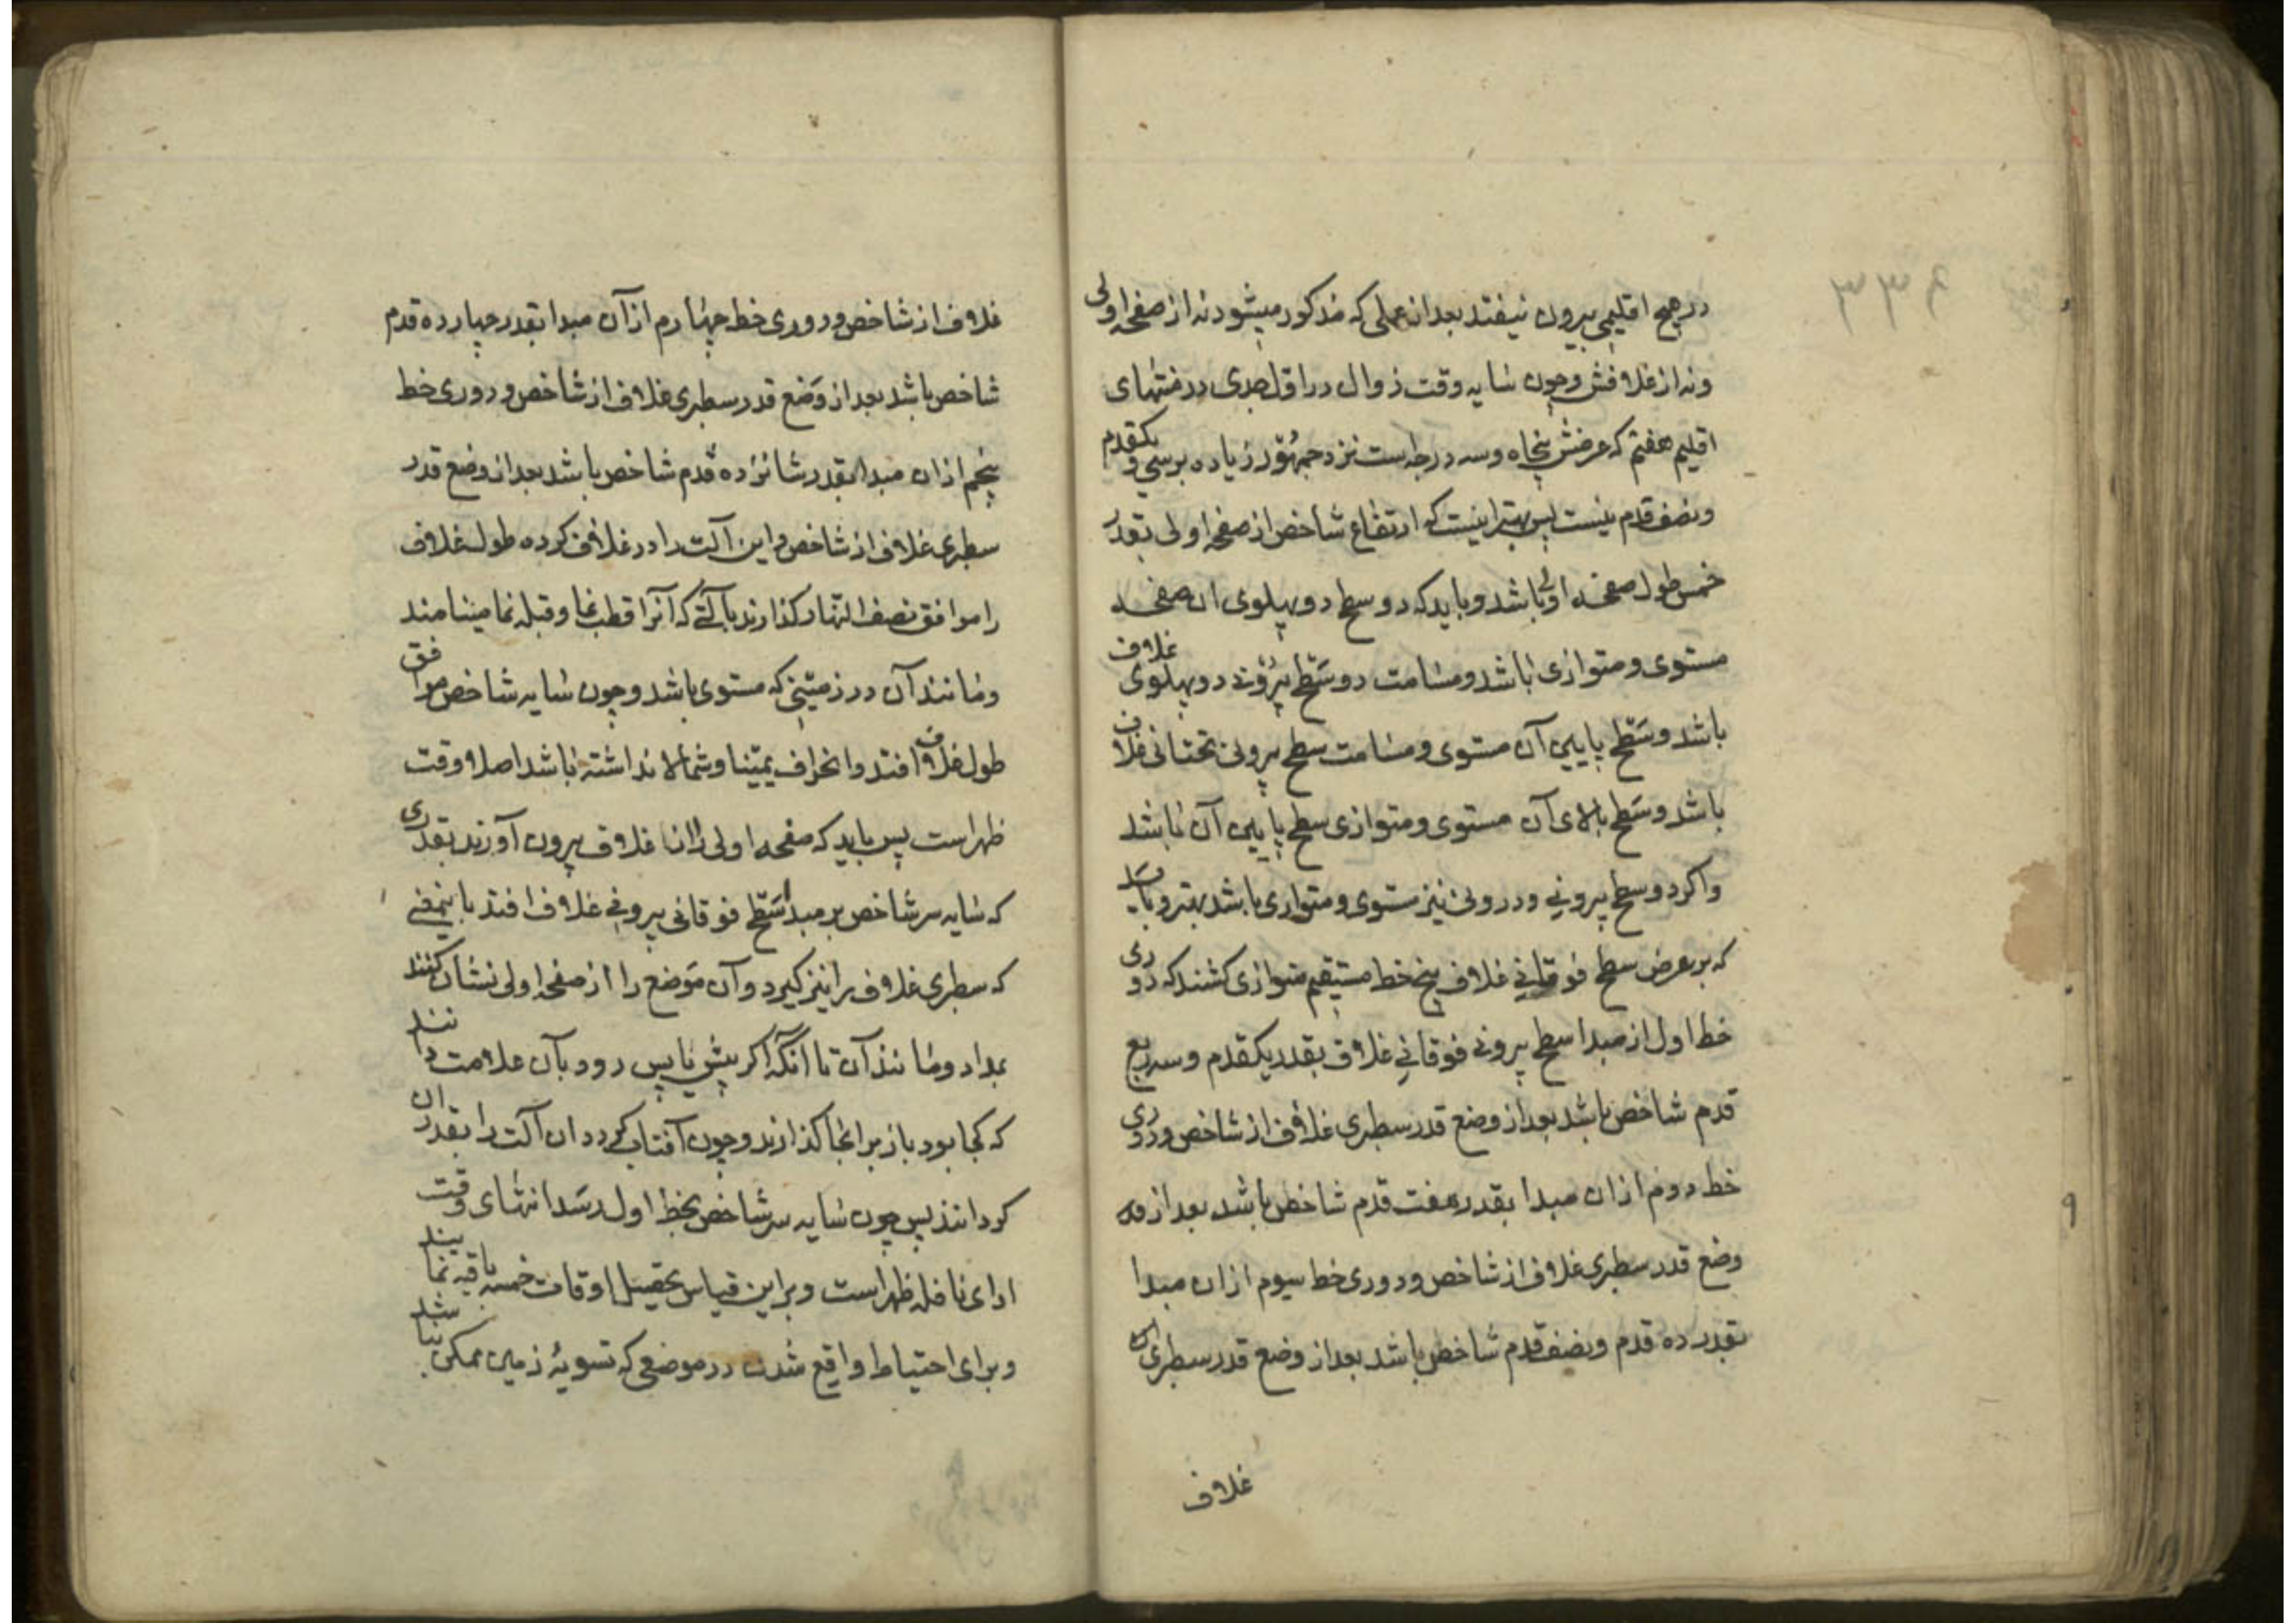 ۳۳۶
در هیچ اقلیمی بیرون نیفتد بعد از عملی که مذکور میشود نه از صفحه اولی
ونه از غلافش وچون سایه وقت زوال در اول جدی در منتهای
اقلیم هفتم که عرضش پنجاه وسه درجه است نزد جمهور زیاده بر سی ویکقدم
ونصف قدم نیست پس بهتر اینست که ارتفاع شاخص از صفحه اولی بقدر
خمس طول صفحه اولی باشد وباید که دو سطح دو پهلوی ان صفحه
مستوی ومتوازی باشد ومسامت دو سطح بیرونی دو پهلوی غلاف
باشد وسطح پایین آن مستوی ومسامت سطح بیرونی تحتانی غلاف
باشد وسطح بالای آن مستوی ومتوازی سطح پایین آن باشد
واکر دو سطح بیرونی ودرونی نیز مستوی ومتوازی باشد بهتر وباید
که بر عرض سطح فوقانی غلاف پنج خط مستقیم متوازی کشند که دوری
خط اول از مبدا سطح بیرونی فوقانی غلاف بقدر یکقدم وسه ربع
قدم شاخص باشد بعد از وضع قدر سطبری غلاف از شاخص ودوری
خط دوم ازان مبدا بقدر هفت قدم شاخص باشد بعد از
وضع قدر سطبری غلاف از شاخص ودوری خط سیوم ازان مبدا
بقدر ده قدم ونصف قدم شاخص باشد بعد از وضع قدر سطبری
غلاف
غلاف از شاخص ودوری خط چهارم از آن مبدا بقدر چهارده قدم
شاخص باشد بعد از وضع قدر سطبری غلاف از شاخص ودوری خط
پنجم ازان مبدا بقدر شانزده قدم شاخص باشد بعد از وضع قدر
سطبری غلاف از شاخص واین آلت را در غلاف کرده طول غلاف
را موافق نصف النهار کذارند بآلتی که آنرا قطب نما وقبله نما مینامند
ومانند آن در زمینی که مستوی باشد وچون سایه شاخص موافق
طول غلاف افتد وانحراف یمینا وشمالا نداشته باشد اصلا وقت
ظهر است پس باید که صفحه اولی را از غلاف بیرون آورند بقدری
که سایه سر شاخص بر مبدا سطح فوقانی بیرونی غلاف افتد باینمعنی
که سطبری غلاف را نیز کیرد وآن موضع را از صفحه اولی نشان کنند
بمداد ومانند آن تا آنکه اکر پیش یا پس رود بآن علامت دانند
که کجا بود باز بر انجا کذارند وچون آفتاب کردد ان آلت را بقدر ان
کردانند پس چون سایه سر شاخص بخط اول رسد انتهای وقت
ادای نافله ظهر است وبر این قیاس تحصیل اوقات خمسه باقیه نمایند
وبرای احتیاط واقع شدن در موضعی که تسویهٔ زمین ممکن نباشد